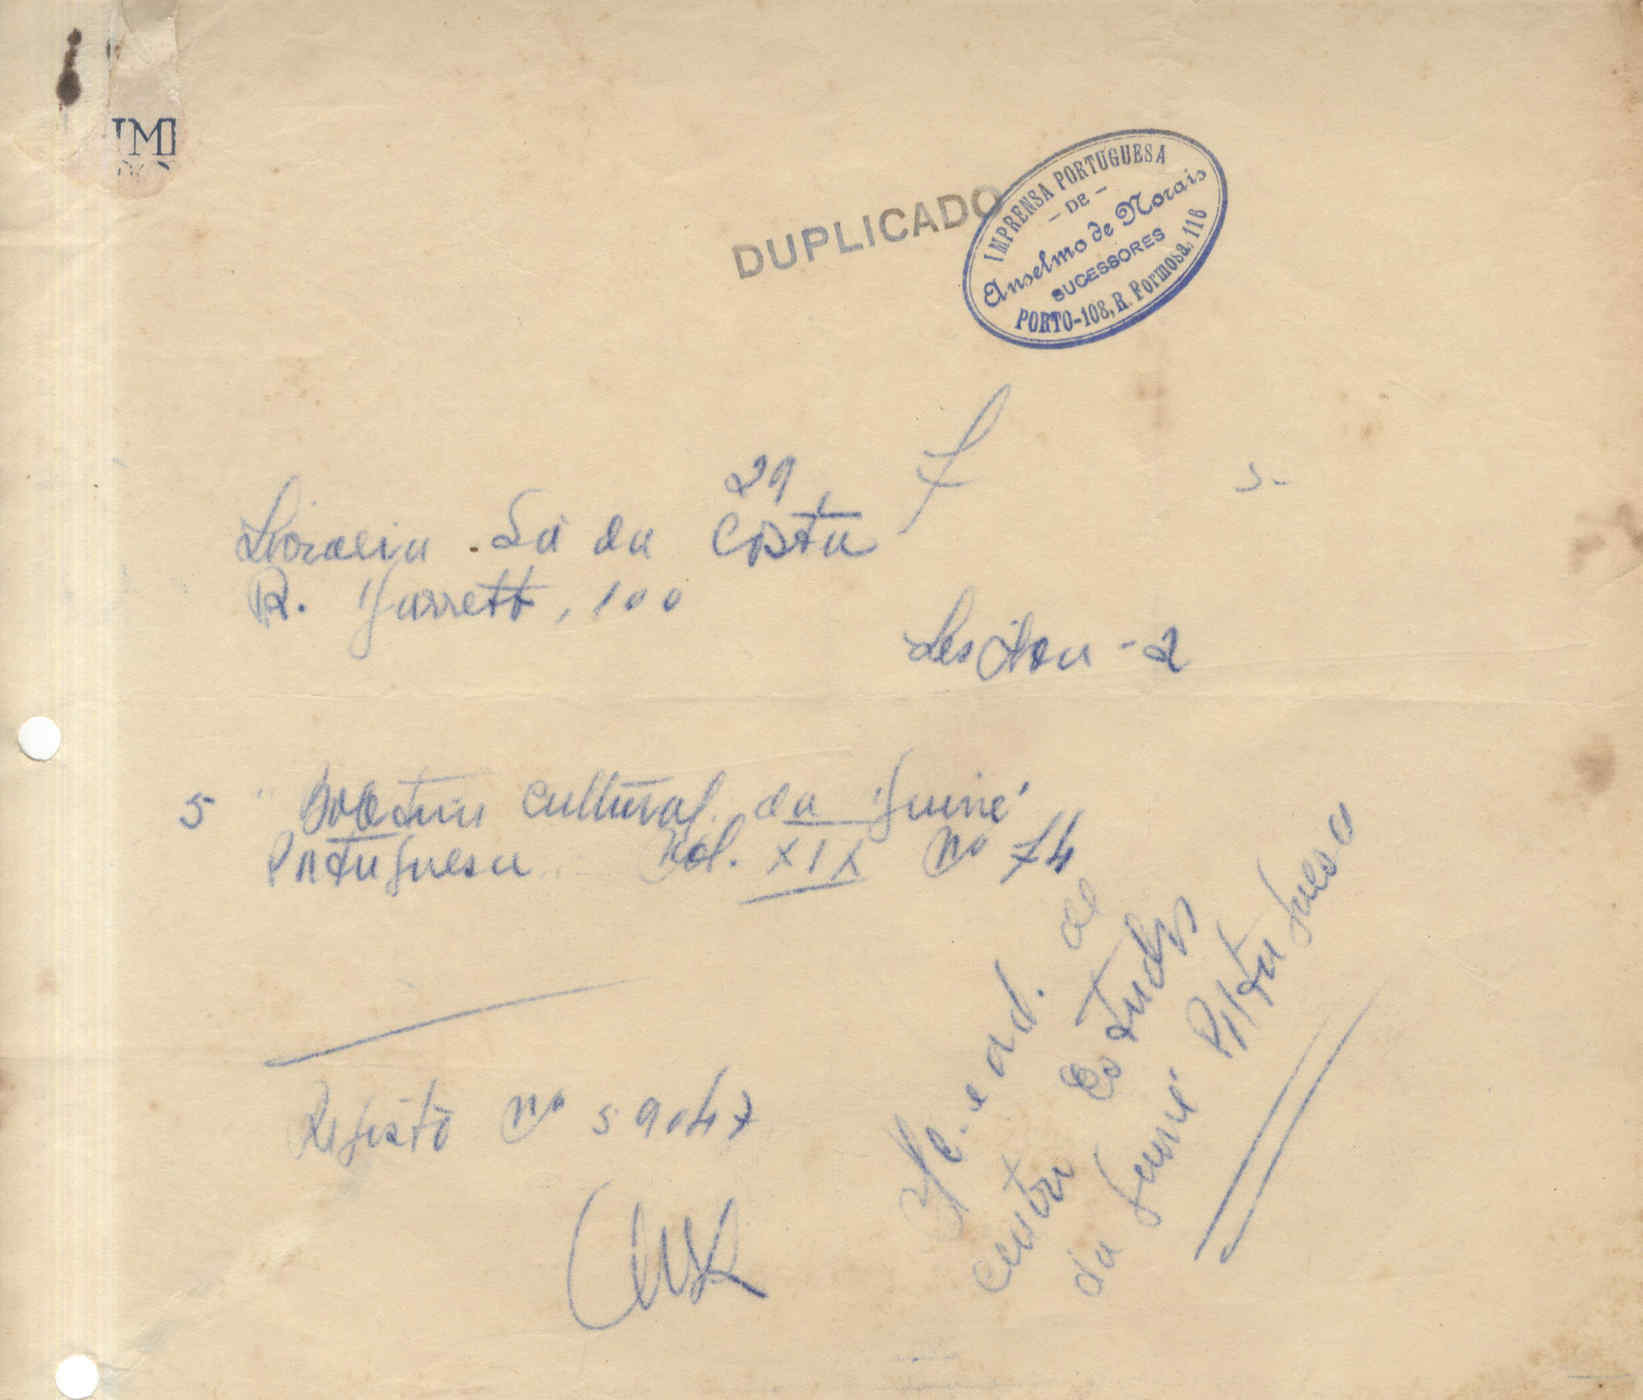 DUPLICADO
IMPRENSA PORTUGUESA
- DE -
Anselmo de Morais
SUCESSORES
PORTO-108, R. Formosa, 116
29 7 5-
Livraria Sá da Costa
R. Garrett, 100
Lisboa - 2
5 Boletim Cultural da Guiné
Portuguesa Vol. XIX Nº 74
Registo nº 59047
e ad. de
Centro Estudos
da Guiné Portuguesa